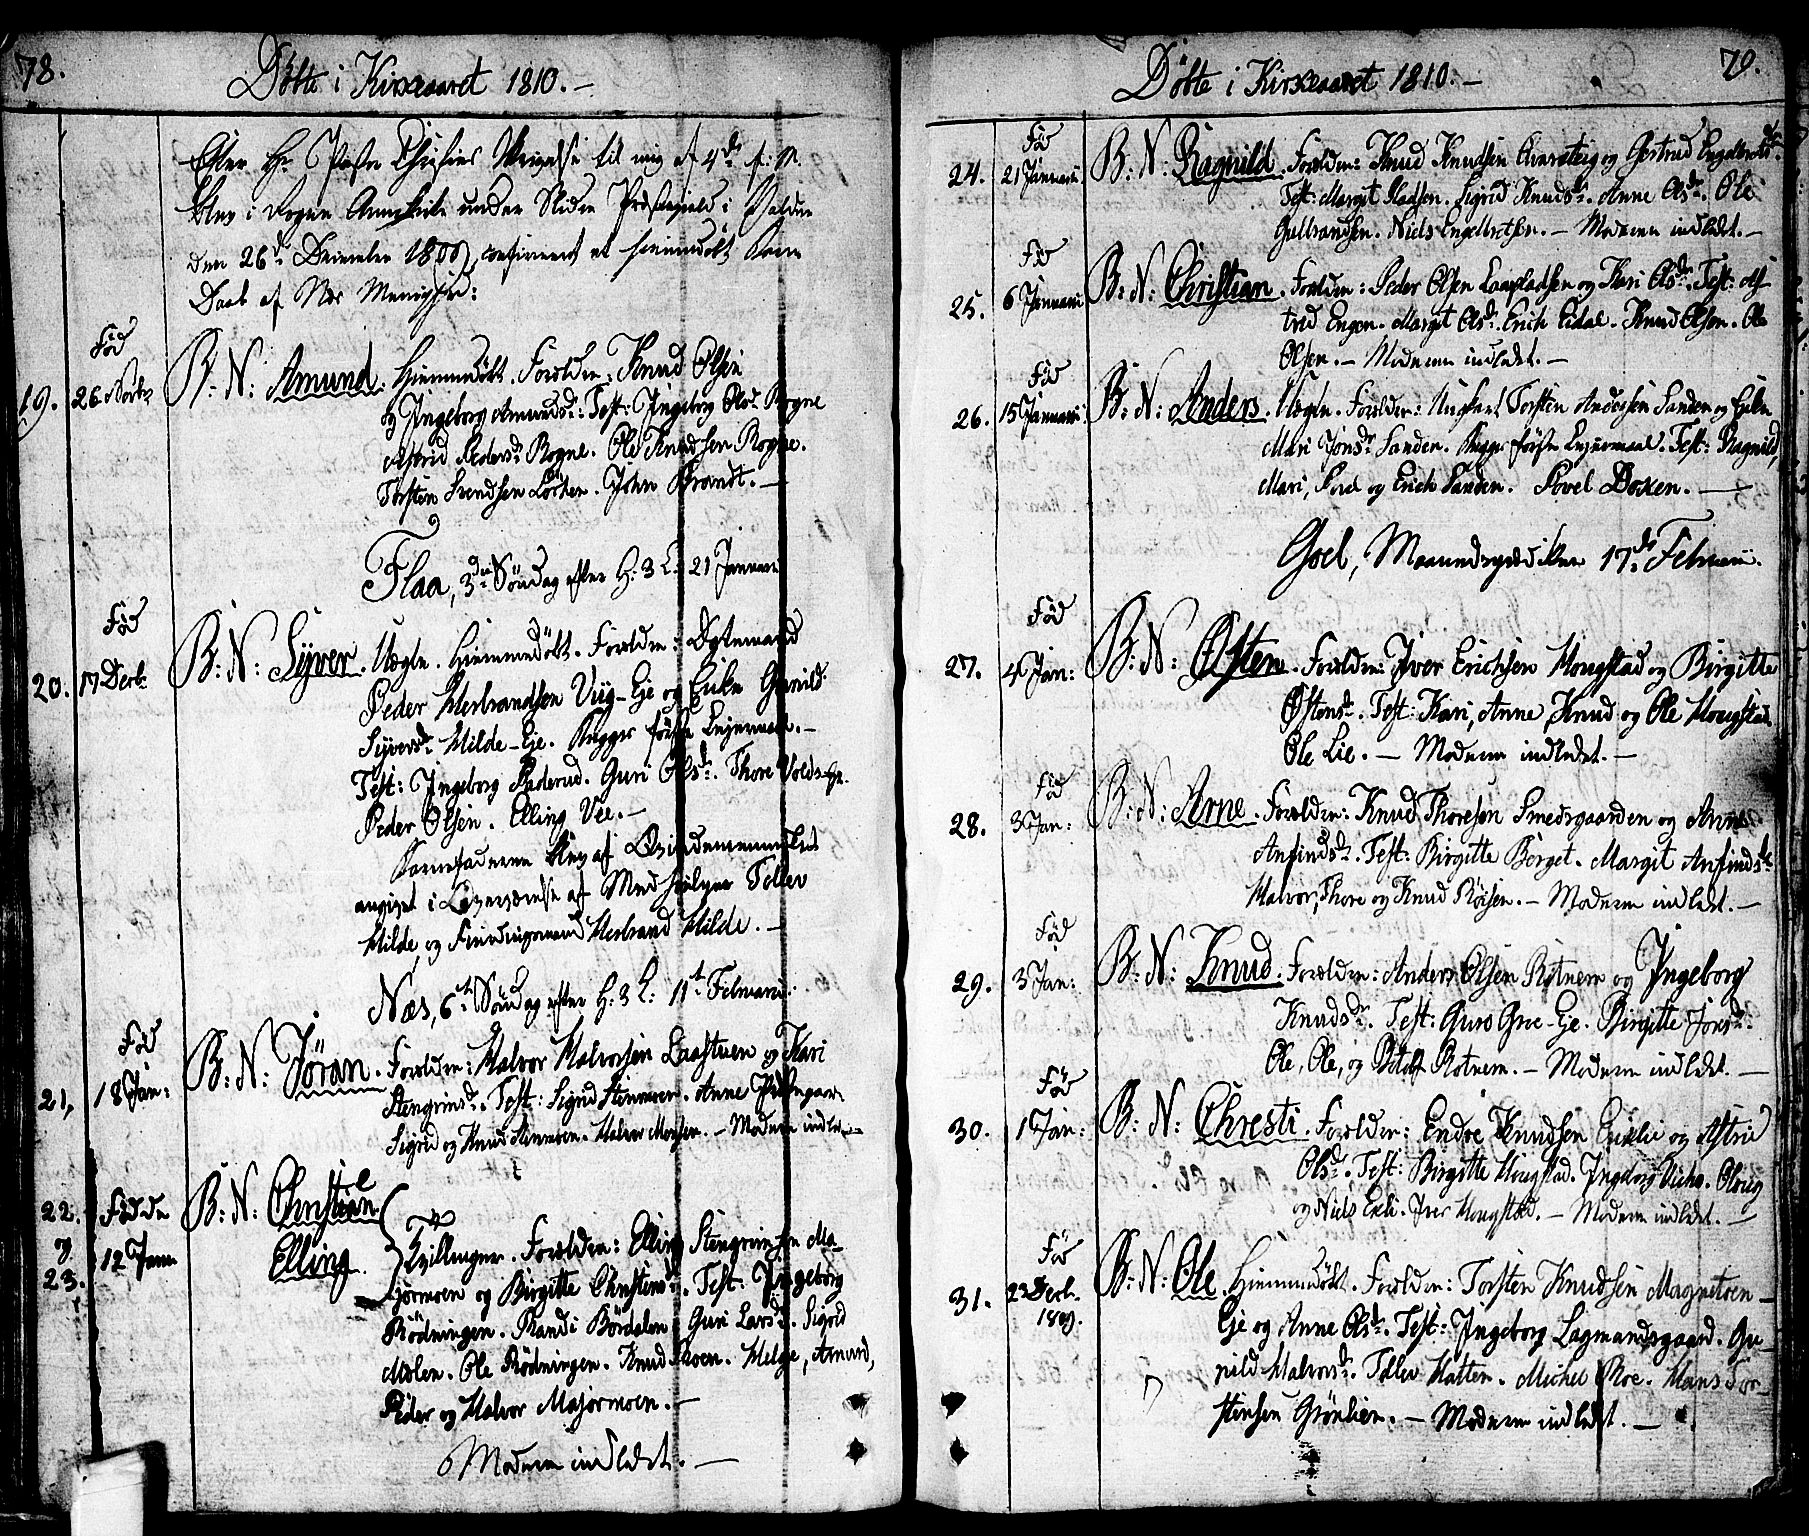 78.
Döbte i Kirkeaaret 1810. —
Efter Hr. Pastor til mig af 4de
blev i Rogne Annexkirke under Slidre Præstegield i Valdres
den 26de December 1809, confirmeret et hiemmedöbt Barns
Daab af Næs Menighed:
Fød
19. 26 Novbr B: N: Amund. Hiemmedöbt. Forældre: Knud Olsen
og Ingeborg Amundsdr: Test: Ingeborg Olsdr Rogne
Astrid Pedersdr Rogne. Ole Knudsen Rogne.
Torsten Svendsen Löken. John Brandt. —
Flaa, 3de Söndag efter H: 3 K: 21 Januari
Fød
20. 17 Decbr B: N: Syver. Uægte. Hiemmedöbt. Forældre:
Peder Herbrandsen Viig-Eje og Enke Gunild
Syversdr Hilde-Eje. Begges første Leiermaal. —
Test: Ingeborg Paderud. Guri Olsdr. Thore Volds-Eje.
Peder Olsen. Elling Vee. —
Barnefaderen blev af Qvindemennesket
angivet i Overværelse af Medhjelper Tollev
Hilde, og Herbrand Hilde. —
Næs, 6te Söndag efter H: 3 K: 11te Februari.
Fød
21, 18 Jan: B: N: Jöran. Forældre: Halvor Halvorsen Laastuen og Kari
Stengrimsdr. Test: Sigrid Stenmoen. Anne
Sigrid og Knud Stenmoen. Halvor Monsen. — Moderen indledt —
22. Fødde B: N: Christine
og 12 Janr Elling Tvillinger. Forældre: Elling Stengrimsen Ma-
23. jormoen og Birgitte Christensdr. Test: Ingeborg
Rödningen. Randi Bördalen. Guri Larsdr. Sigrid
Molen. Ole Rödningen. Knud Moen. Helge, Amund,
Peder og Halvor Majormoen. —
Moderen indledt. —
79.
Döbte i Kirkeaaret 1810. —
Fød
24. 21 Januari B: N: Ragnild. Forældre: Knud Knudsen og Gertrud Engelbretsdr.
Test: Margit Kladsen. Sigrid Knudsdr. Anne Olsdr. Ole
Gulbrandsen. Niels Engelbretsen. — Moderen indledt. —
Fød
25. 6 Januari B: N: Christian. Forældre: Peder Olsen og Kari Olsdr. Test: As-
trid Engen. Margit Olsdr. Erich Eidal. Knud Olsen. Ole
Olsen. — Moderen indledt. —
Fød
26. 15 Januari B: N: Anders. Uægte. Forældre: Ungkarl Torsten Andersen Sanden og Enke
Mari Jonsdr Sanden. Begges første Leiermaal. Test: Ragnild,
Mari, Povel og Erich Sanden. Povel Doken. —
Goel, 17de Februari.
Fød
27. 4 Jan: B: N: Østen. Forældre: Iver Erichsen Hougstad og Birgitte
Østensdr. Test: Kari, Anne, Knud og Ole Hougstad.
Ole Lie. — Moderen indledt. —
Fød
28. 3 Jan: B: N: Arne. Forældre: Knud Thoresen Smedsgaarden og Anne
Anfindsdr. Test: Birgitte Berget. Margit Anfindsdr.
Halvor, Thore og Knud Röisen. — Moderen indledt. —
Fød
29. 3 Jan: B: N: Knud. Forældre: Anders Olsen Rotnem og Ingeborg
Knudsdr. Test: Guro Groe-Eje. Birgitte Jonsdr.
Ole, Ole, og Botolf Rotnem. — Moderen indledt. —
Fød
30. 1 Jan: B: N: Chresti. Forældre: Endre Knudsen Ekelie og Astrid
Olsdr. Test: Birgitte Hougstad. Ingeborg. Olaug
og Niels Exli. Iver Hougstad. — Moderen indledt. —
Fød
31. 23 Decbr. B: N: Ole. Hiemmedöbt. Forældre: Torsten Knudsen Magnetoen-
1809. Eje og Anne Olsdr. Test: Ingeborg Lagmandsgaard. Gu-
nild Halvorsdr. Tollev Hatten. Michel Roe. Hans Tor-
stensen Grönlien. — Moderen indledt. —